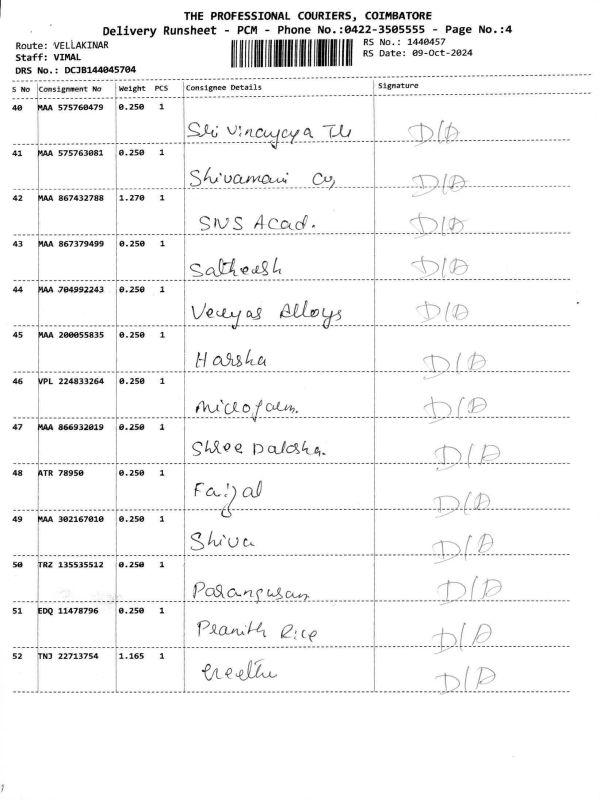 THE PROFESSIONAL COURIERS, COIMBATORE
Delivery Runsheet - PCM - Phone No.:0422-3505555 - Page No.:4
Route: VELLAKINAR
RS No.: 1440457
Staff: VIMAL
RS Date: 09-Oct-2024
DRS No.: DCJB144045704
S No Consignment No Weight PCS Consignee Details Signature
40 MAA 575760479 0.250 1
Sri Vinayaga D/A
41 MAA 575763081 0.250 1
Shivamani D/A
42 MAA 867432788 1.270 1
SNS Acad. D/A
43 MAA 867379499 0.250 1
Satheesh D/A
44 MAA 704992243 0.250 1
Alloys D/A
45 MAA 200055835 0.250 1
Harsha D/A
46 VPL 224833264 0.250 1
Microfaem. D/A
47 MAA 866932019 0.250 1
Shree Daksha. D/A
48 ATR 78950 0.250 1
Faizal D/A
49 MAA 302167010 0.250 1
Shiva D/A
50 TRZ 135535512 0.250 1
Parangusam D/A
51 EDQ 11478796 0.250 1
Pranith Rice D/A
52 TNJ 22713754 1.165 1
D/A